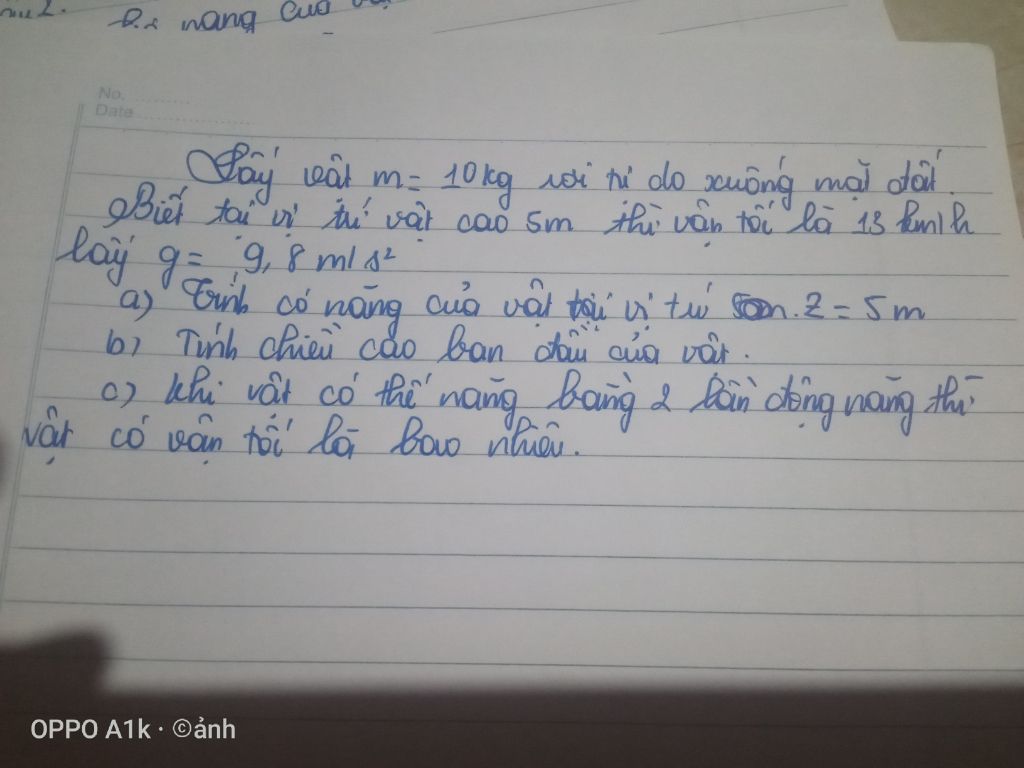 nang của
No.
Date
Lấy vật m = 10kg rơi tự do xuống mặt đất.
Biết tại vị trí vật cao 5m thì vận tốc là 13 km/h
lấy g = 9,8 m/s²
a) Tính cơ năng của vật tại vị trí Z = 5m
b) Tính chiều cao ban đầu của vật.
c) Khi vật có thế năng bằng 2 lần động năng thì
vật có vận tốc là bao nhiêu.
OPPO A1k · ©ảnh